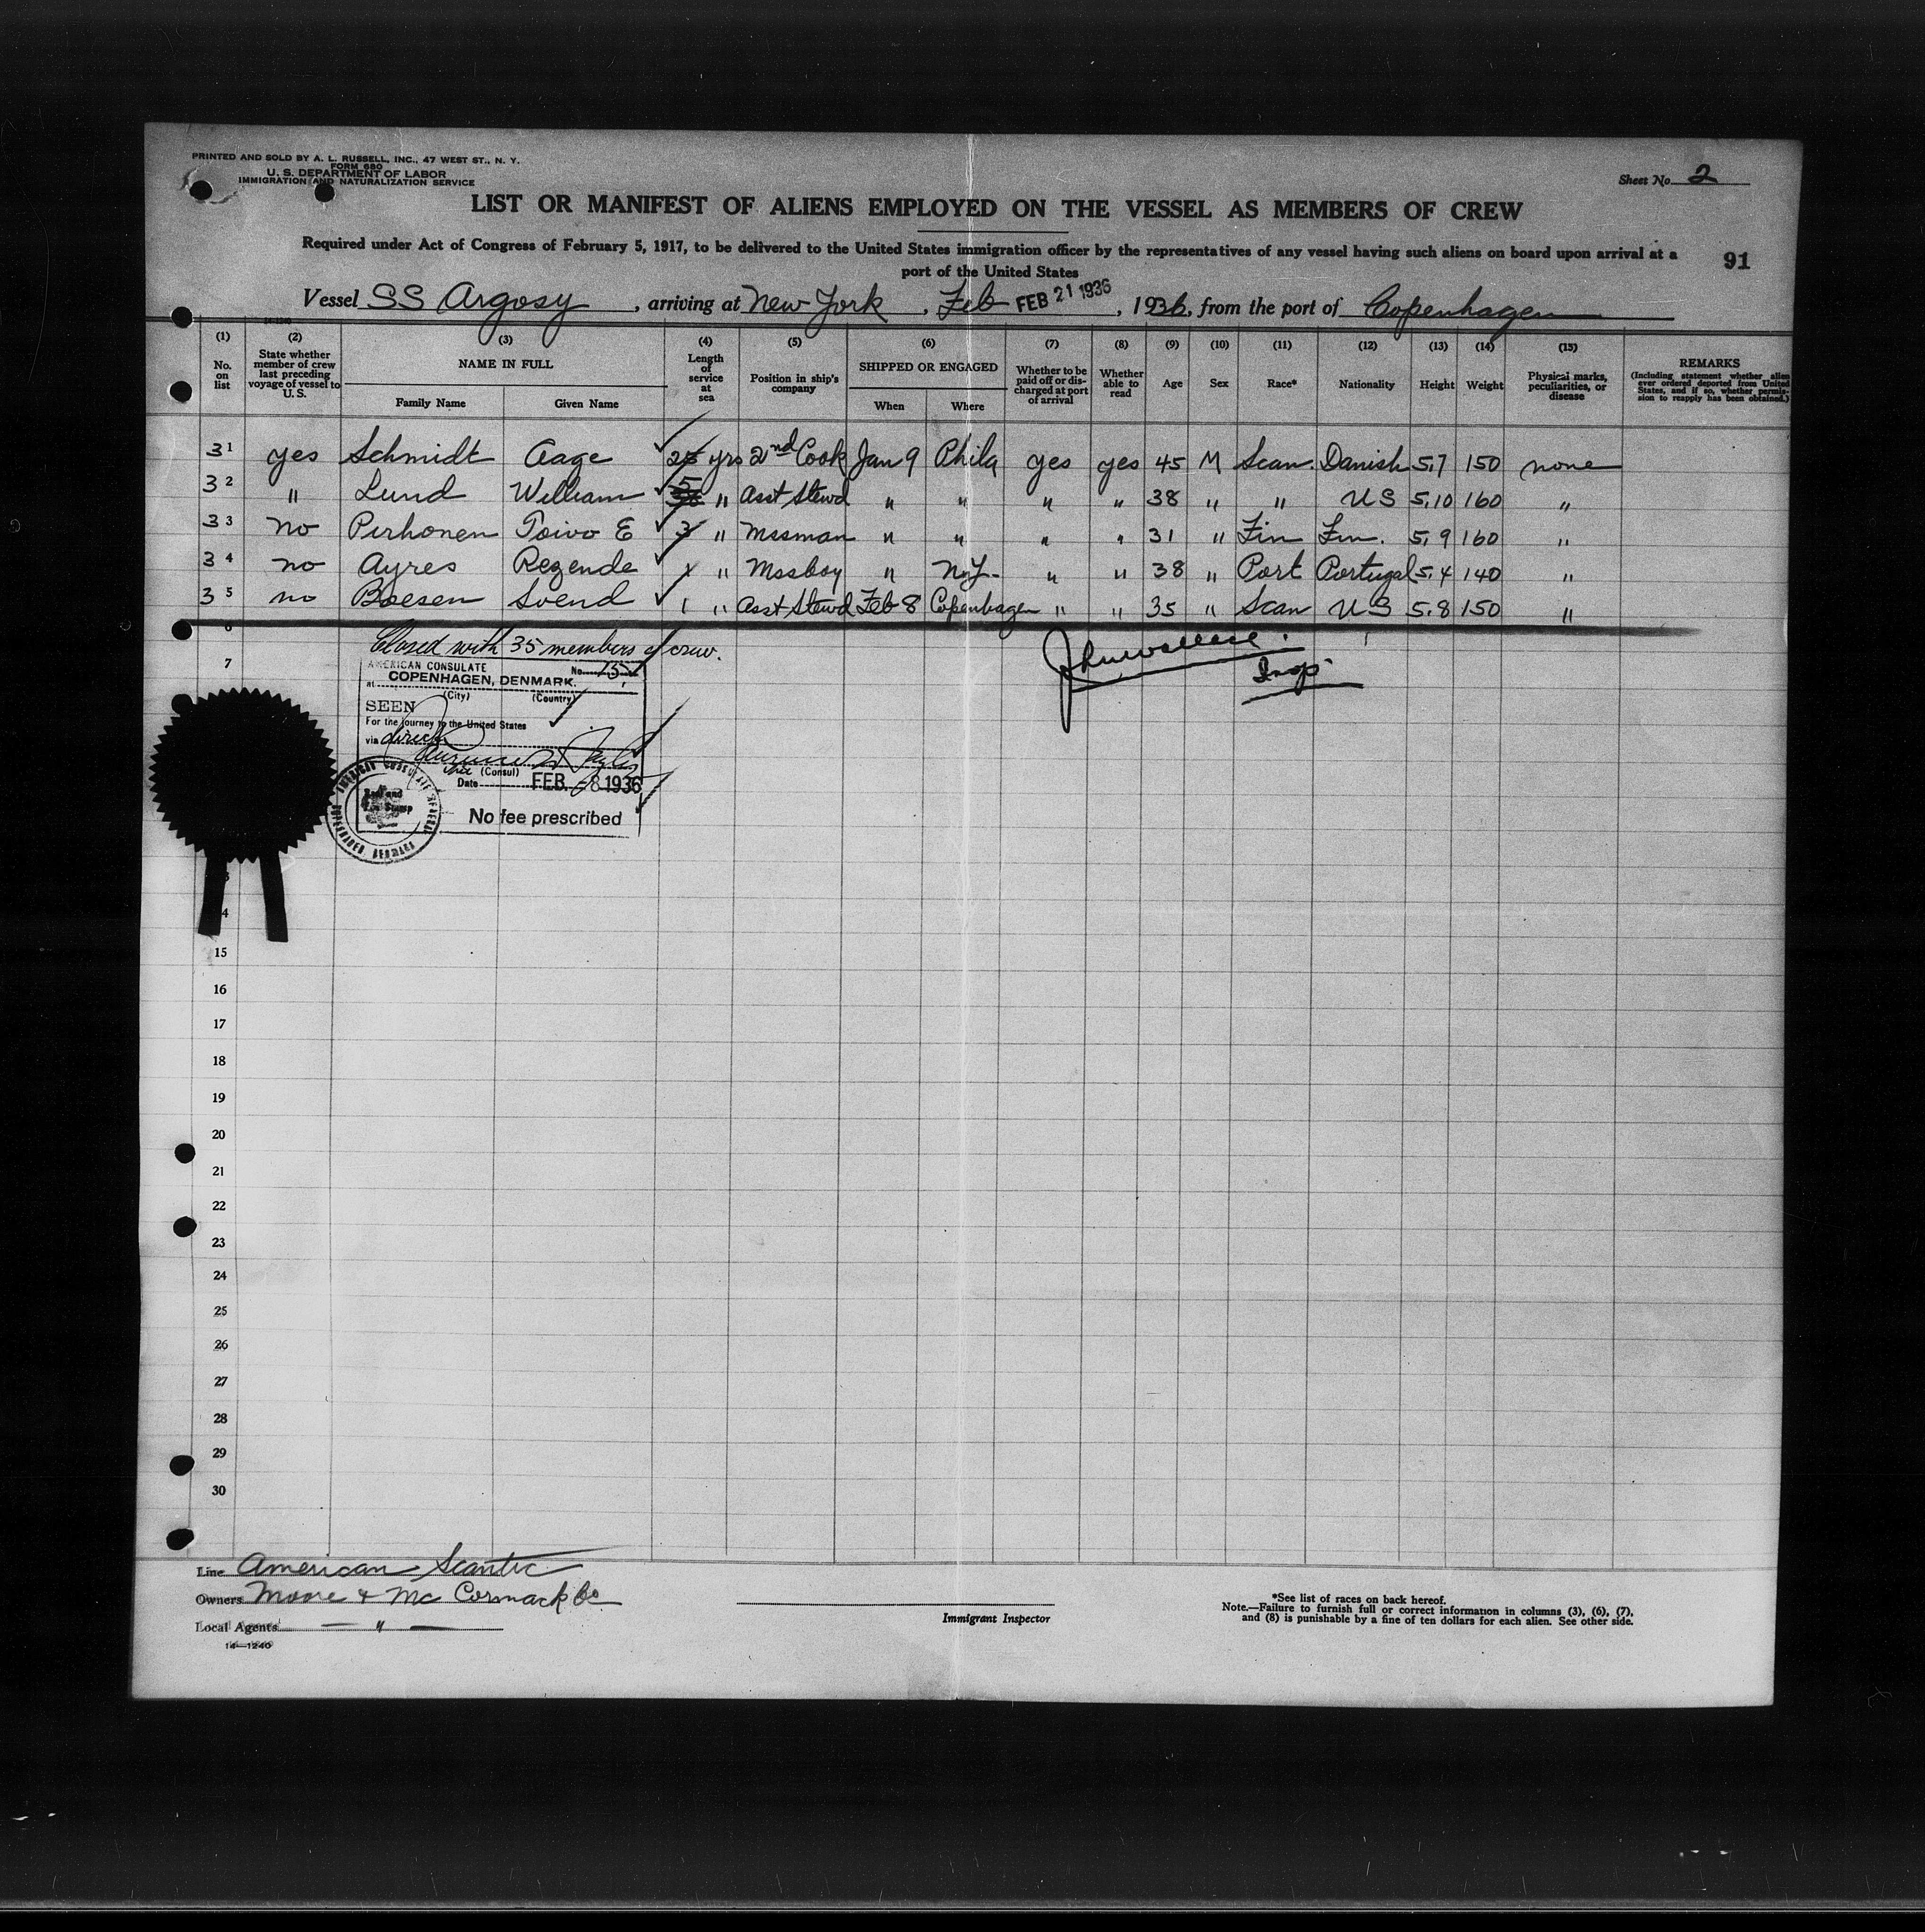 PRINTED AND SOLD BY A. L. RUSSELL, INC., 47 WEST ST., N. Y.
FORM 680
U. S. DEPARTMENT OF LABOR
IMMIGRATION AND NATURALIZATION SERVICE
Sheet No. 2
LIST OR MANIFEST OF ALIENS EMPLOYED ON THE VESSEL AS MEMBERS OF CREW
Required under Act of Congress of February 5, 1917, to be delivered to the United States immigration officer by the representatives of any vessel having such aliens on board upon arrival at a
port of the United States
91
Vessel SS Argosy, arriving at New York, Feb FEB 21 1936, 1936, from the port of Copenhagen
(1) No. on list (2) State whether member of crew last preceding voyage of vessel to U.S. (3) NAME IN FULL Family Name Given Name (4) Length of service at sea (5) Position in ship's company (6) SHIPPED OR ENGAGED When Where (7) Whether to be paid off or discharged at port of arrival (8) Whether able to read (9) Age (10) Sex (11) Race* (12) Nationality (13) Height (14) Weight (15) Physical marks, peculiarities, or disease REMARKS (Including statement whether alien ever ordered deported from United States, and if so, whether permission to reapply has been obtained.)
31 yes Schmidt Aage 25 yrs 2nd Cook Jan 9 Phila yes yes 45 M Scan. Danish 5,7 150 none
32 " Lund William 5 " Asst Stewd " " " " 38 " " US 5,10 160 "
33 no Pirhonen Toivo E 3 " Mssman " " " " 31 " Fin Fin. 5,9 160 "
34 no Ayres Rezende 1 " Mssboy " N.Y. " " 38 " Port Portugal 5,4 140 "
35 no Boesen Svend 1 " Asst Stewd Feb 8 Copenhagen " " 35 " Scan US 5,8 150 "
6
Closed with 35 members of crew.
7
AMERICAN CONSULATE No. 15
at COPENHAGEN, DENMARK.
(City) (Country)
SEEN
For the journey to the United States
via direct
Vice (Consul)
Date FEB. -8 1936
No fee prescribed
Insp.
15
16
17
18
19
20
21
22
23
24
25
26
27
28
29
30
Line American Scantic
Owners Moore & McCormack Co
Local Agents — " —
14—1240
Immigrant Inspector
*See list of races on back hereof.
Note.—Failure to furnish full or correct information in columns (3), (6), (7),
and (8) is punishable by a fine of ten dollars for each alien. See other side.